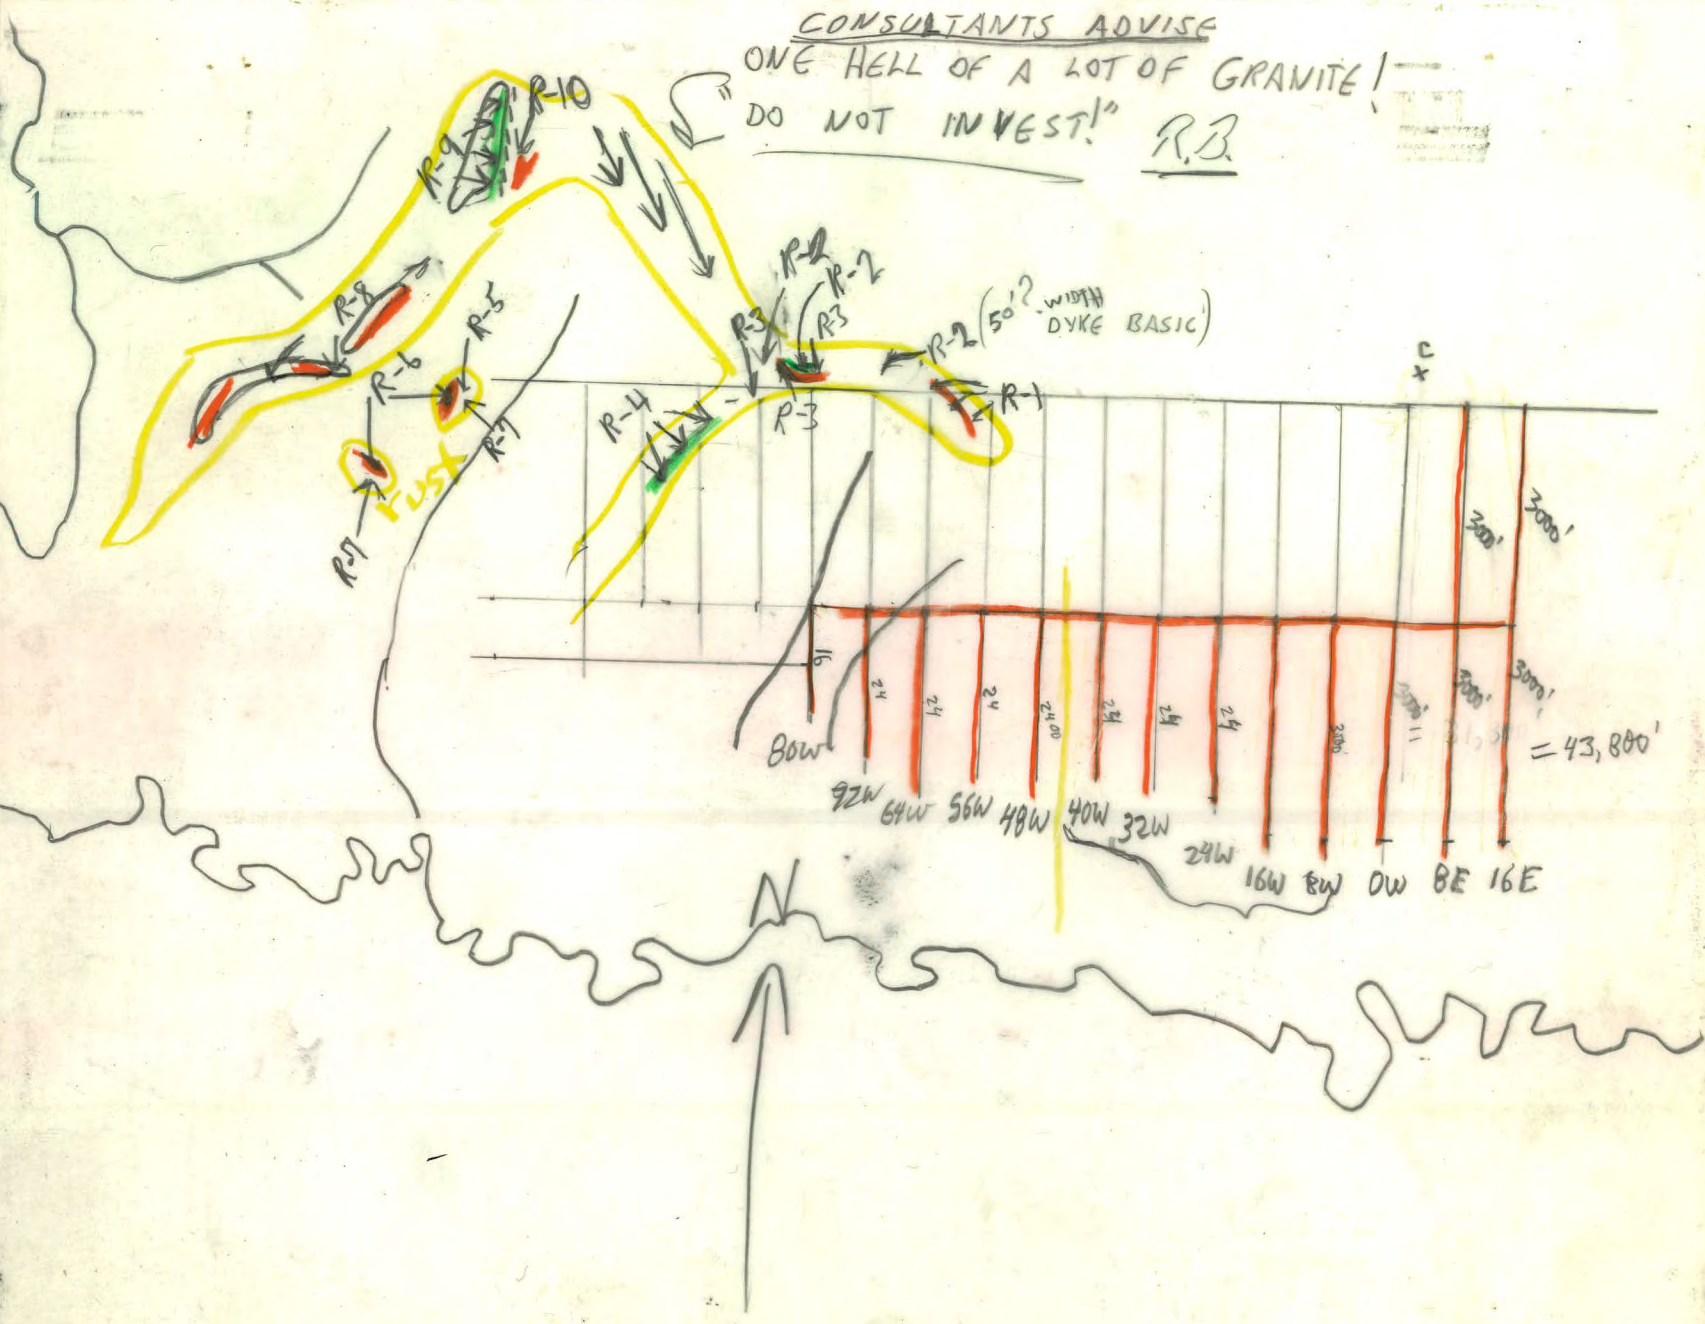 CONSULTANTS ADVISE
ONE HELL OF A LOT OF GRANITE!
"DO NOT INVEST!" R.B.
R-10
R-9
R-2
R-8
R-5
R-3
R-3
R-2 (50'? WIDTH
DYKE BASIC)
R-6
R-1
R-4
R-3
R-7
rust
R-7
C
X
3000'
3000'
16
24
24
24
2400
24
24
24
3000'
3000'
3000'
3000'
= 43,800'
80W
92W
64W
56W
48W
40W
32W
24W
16W
8W
0W
8E
16E
N